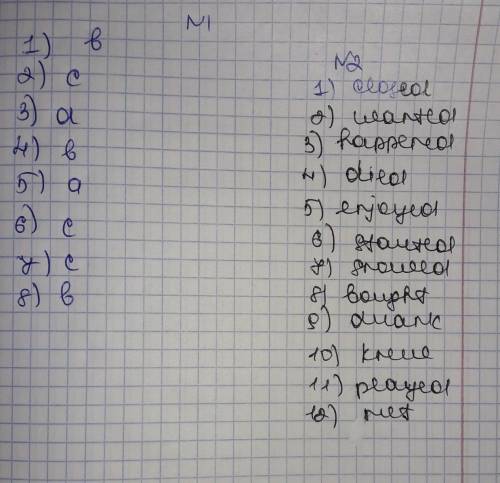 №1
1) b
2) c
3) a
4) b
5) a
6) c
7) c
8) b
№2
1) closed
2) wanted
3) happened
4) died
5) enjoyed
6) started
7)
8) bought
9) drank
10) knew
11) played
12) met